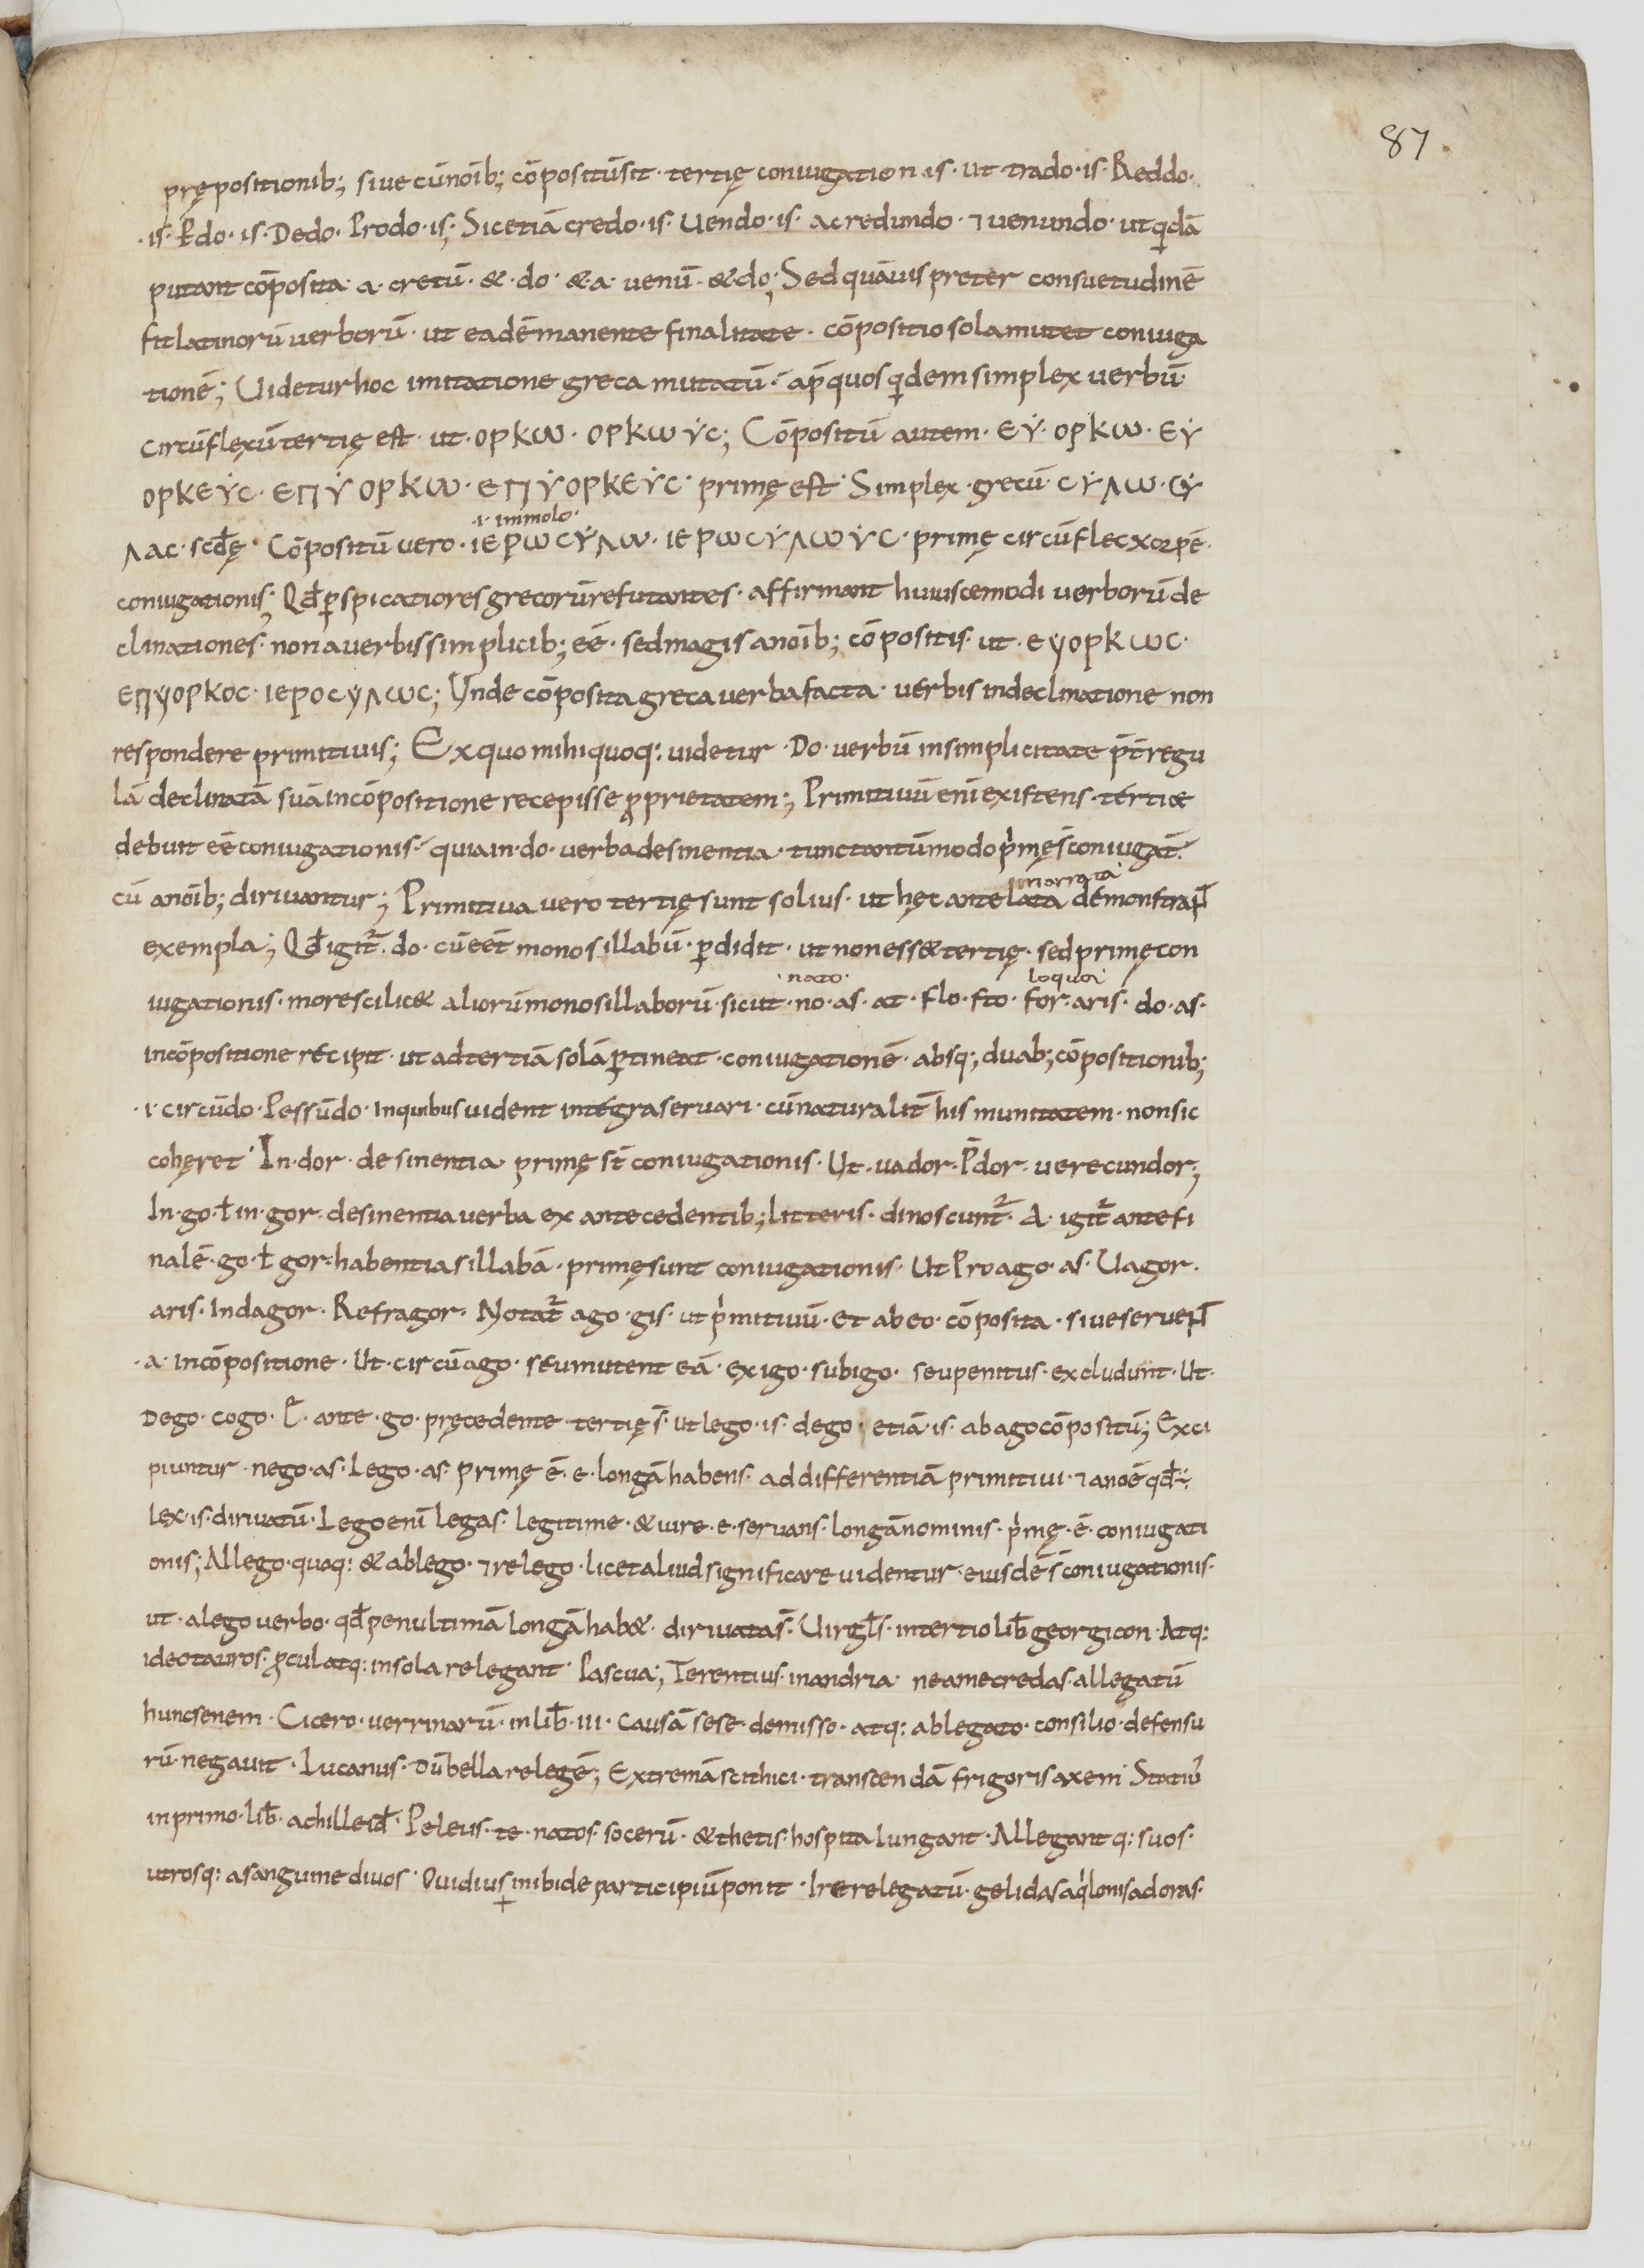 87.
prępositionib; siue cū noīb; cōpositū sit · tertię coniugationis · ut trado · is · Reddo ·
· is · Edo · is · Dedo · Prodo · is; Sic etiā credo · is · Uendo · is · ac redundo · ⁊ uenundo · ut qidā
putant cōposita · a · cretū · & · do · & a · uenū · & do; Sed quāuis preter consuetudinē
fit latinorū uerborū · ut eadē manente finalitate · cōpositio sola mutet coniuga
tionē; Uidetur hoc imitatione greca mutatū · ap̄ quos qidem simplex uerbū
circūflexū tertię est · ut · ορκω · ορκωẏc; Cōpositū autem · εẏ · ορκω · εẏ
ορκεẏc · επẏορκω · επẏορκεẏc · primę est · Simplex · grecū · cẏλω · cẏ
· i · immolo ·
λac · scđę · Cōpositū uero · ιερωcẏλω · ιερωcẏλωẏc · primę circūflecxorpē ·
coniugationis; Qđ ꝑspicatiores grecorū refutantes · affirmant huiuscemodi uerborū de
clinationes · non a uerbis simplicib; eē · sed magis a noīb; cōpositis · ut · εyορκωc ·
επyορκοc · ιεροcyλωc; Unde cōposita greca uerba facta · uerbis in declinatione non
respondere primitiuis; Ex quo mihi quoq: uidetur · Do · uerbū in simplicitate p̄t regu
lā declinatā suā in cōpositione recepisse ꝓprietatem; Primitiuū enī existens · tertiae
debuit eē coniugationis · quia in · do · uerba desinentia · tunc tantūmodo pⁱmę s̄ coniugat̄ ·
cū a noīb; diriuantur; Primitiua uero tertię sunt solius · ut hęc ante lata demonstrāp̄
narrata
exempla; Qđ igit̄ · do · cū eēt monosillabū · ꝑdidit · ut non ess& tertię · sed primę con
· nato · loquor
iugationis · more scilic& aliorū monosillaborū · sicut · no · as · at · flo · sto · for · aris · do · as ·
in cōpositione recipit · ut ad tertiā solā ꝑtineat · coniugationē · absq; duab; cōpositionib;
· i · circūdo · Pessūdo · in quibus uident integra seruari · cū naturalit̄ his munitatem · non sic
cohęret · In · dor · desinentia primę s̄t coniugationis · Ut · uador · P̄dor · uerecundor;
In · go · ł in · gor · desinentia uerba ex antecedentib; litteris · dinoscunt̄ · A · igit̄ ante fi
nalē · go · ł gor · habentia sillabā · primę sunt coniugationis · Ut Proago · as · Uagor ·
aris · Indagor · Refragor · Notat̄ ago · gis · ut pⁱmitiuū · et ab eo · cōposita · siue seruep̄
· a · in cōpositione · Ut · circūago · seu mutent eā · exigo · subigo · seu penitus · excludunt · Ut ·
Dego · cogo · E · ante · go · pręcedente · tertię s̄ · ut lego · is · dego · etiā · is · ab ago cōpositū; Exci
piuntur · nego · as · Lego · as · primę ē · e · longā habens · ad differentiā primitiui · ⁊ a noē qđ ÷
lex · is · diriuatū · Lego enī legas · legitime · & iure · e · seruans · longā nominis · pⁱmę · ē · coniugati
onis; Allego · quoq: & ablego · ⁊ relego · licet aliud significare uidentur · eiusdē s̄ coniugationis ·
ut · a lego uerbo · qđ penultimā longā hab& · diriuata s̄ · Uirgłs · in tertio lib̄ georgicon · Atq:
ideo tauros · ꝓcul atq: in sola relegant · Pascua; Terentius · in andria · ne a me credas · allegatū
hunc senem · Cicero · uerrinarū · in lib̄ · iii · causā sese · demisso · atq: ablegato · consilio · defensu
rū · negauit · Lucanus · Dū bella relegē; Extremā scithici · transcendā frigoris axem · Statiuˢ
in primo · lib̄ · achilleid̄ · Peleus · te · natos · socerū · & thetis · hospita lungant · Allegant q: suos ·
utrosq: a sanguine diuos · Ouidius in ibide participiū ponit · Ire relegatū · gelidas aqⁱlonis ad oras ·